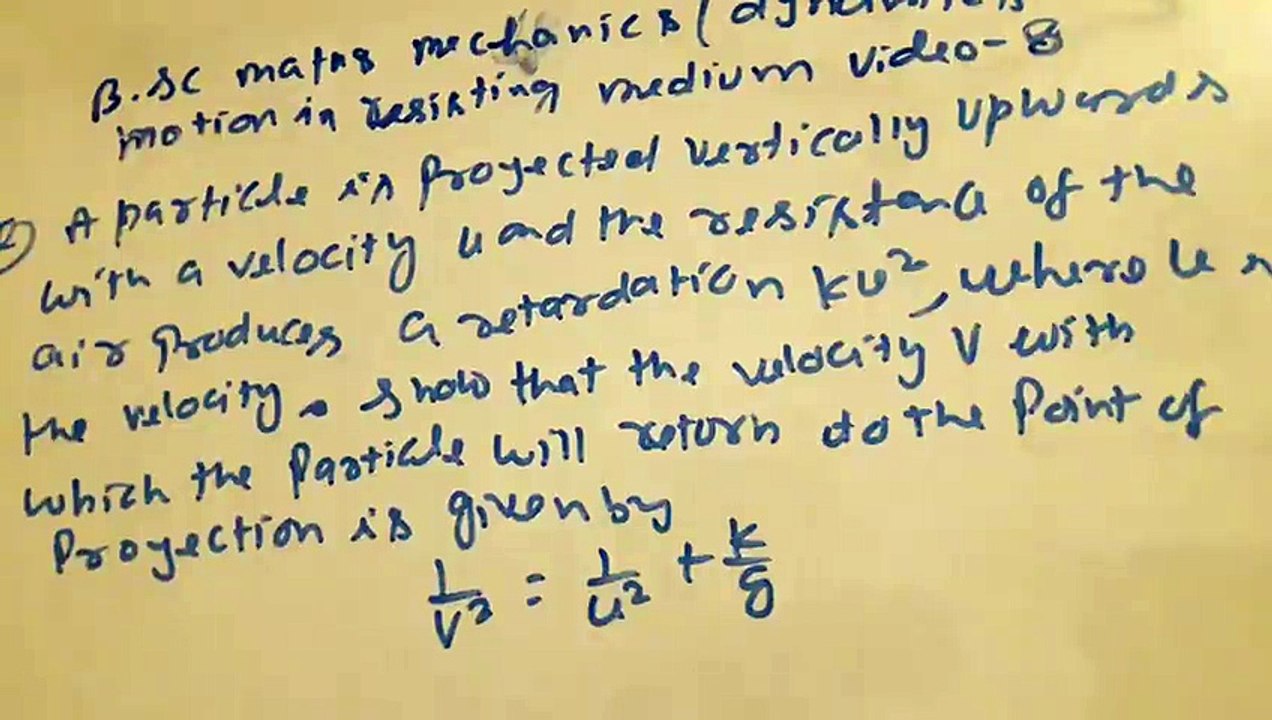 B.SC maths mechanics (dynamics
motion in resisting medium video-8
A particle is projected vertically upwards
with a velocity u and the resistance of the
air produces a retardation kv², where v is
the velocity. Show that the velocity V with
which the particle will return to the point of
projection is given by
1/V² = 1/u² + k/g